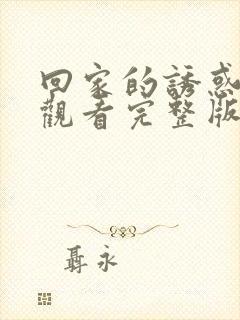 回家的誘惑
觀看完整版
聶永